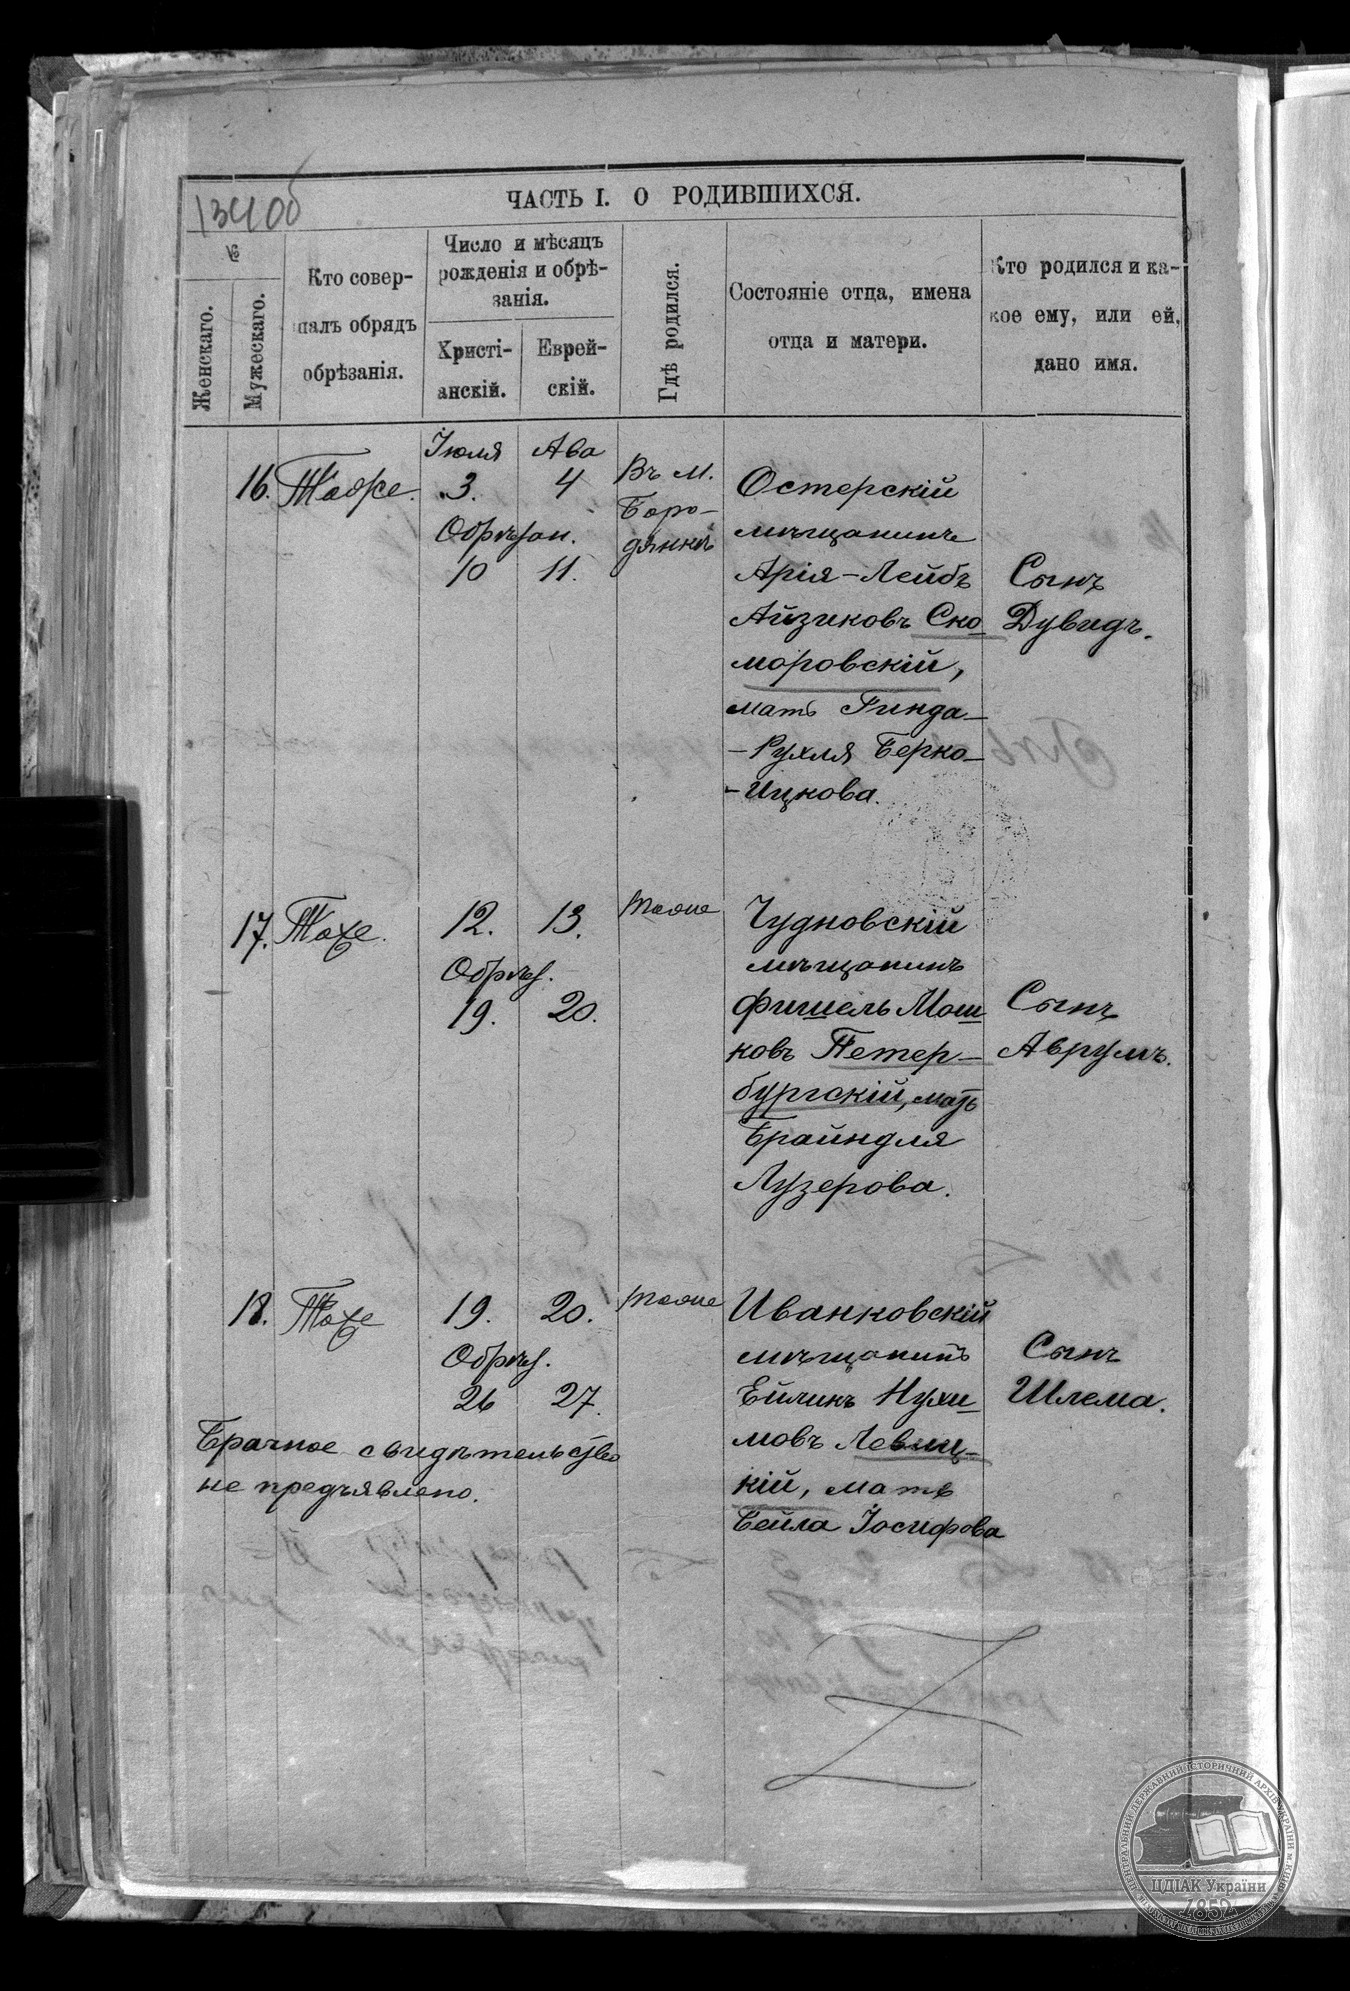 134об
ЧАСТЬ I. О РОДИВШИХСЯ.
№
Женскаго.
Мужескаго.
Кто совер-
шалъ обрядъ
обрѣзанія.
Число и мѣсяцъ
рожденія и обрѣ-
занія.
Христі-
анскій.
Еврей-
скій.
Гдѣ родился.
Состояніе отца, имена
отца и матери.
Кто родился и ка-
кое ему, или ей,
дано имя.
16. Тоже.
Іюля Ава
3. 4
Обрѣзан.
10 11.
Въ м.
Боро-
дянкѣ
Остерскій
мѣщанинъ
Арія-Лейбъ
Айзиковъ Ско-
моровскій,
мать Гинда-
-Рухля Берко-
-Ицкова.
Сынъ
Дувидъ.
17. Тоже.
12. 13.
Обрѣз.
19. 20.
тоже
Чудновскій
мѣщанинъ
Фишель Мош-
ковъ Петер-
бургскій, мать
Брайндля
Лузерова.
Сынъ
Аврумъ.
18. Тоже
19. 20.
Обрѣз.
26 27.
тоже
Иванковскій
мѣщанинъ
Ейликъ Нухи-
мовъ Левиц-
кій, мать
Бейла Іосифова
Сынъ
Шлема.
Брачное свидѣтельство
не предъявлено.
ЦДІАК України
1852